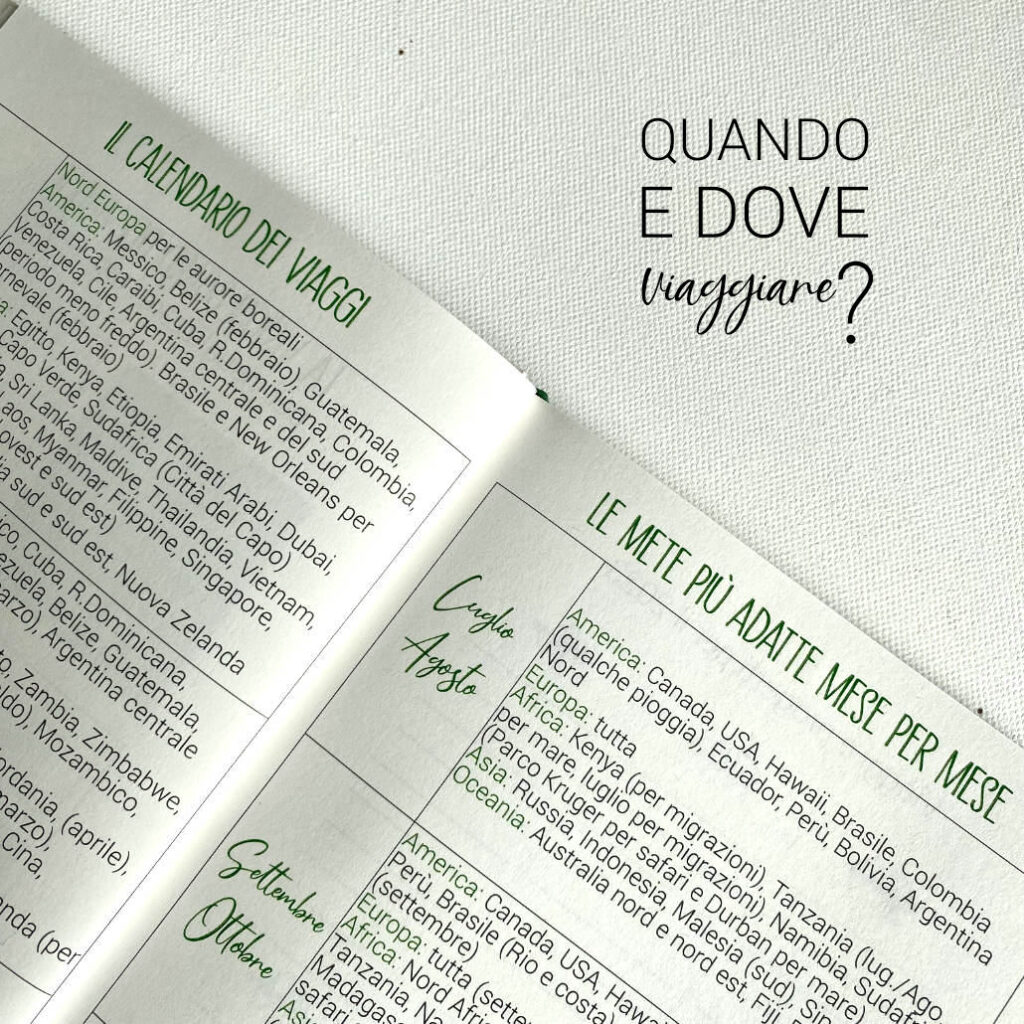 QUANDO
E DOVE
viaggiare?
IL CALENDARIO DEI VIAGGI
Nord Europa per le aurore boreali
America: Messico, Belize (febbraio), Guatemala,
Costa Rica, Caraibi, Cuba, R.Dominicana, Colombia,
Venezuela, Cile, Argentina centrale e del sud
(periodo meno freddo). Brasile e New Orleans per
(febbraio)
Egitto, Kenya, Etiopia, Emirati Arabi, Dubai,
Capo Verde, Sudafrica (Città del Capo)
Sri Lanka, Maldive, Thailandia, Vietnam,
Laos, Myanmar, Filippine, Singapore,
ovest e sud est)
sud e sud est, Nuova Zelanda
Cuba, R.Dominicana,
Belize, Guatemala,
Argentina centrale
Zambia, Zimbabwe,
Mozambico,
(aprile),
marzo),
Cina,
(per
LE METE PIÙ ADATTE MESE PER MESE
Luglio
Agosto
America: Canada, USA, Hawaii, Brasile, Colombia
(qualche pioggia), Ecuador, Perù, Bolivia, Argentina
Nord
Europa: tutta
Africa: Kenya (per migrazioni), Tanzania (lug./Ago
per mare, luglio per migrazioni), Namibia,
(Parco Kruger per safari e Durban per mare)
Asia: Russia, Indonesia, Malesia (sud),
Oceania: Australia nord e nord est,
Settembre
Ottobre
America: Canada, USA,
Perù, Brasile (Rio e costa)
(settembre)
Europa: tutta
Africa: Nord
Tanzania,